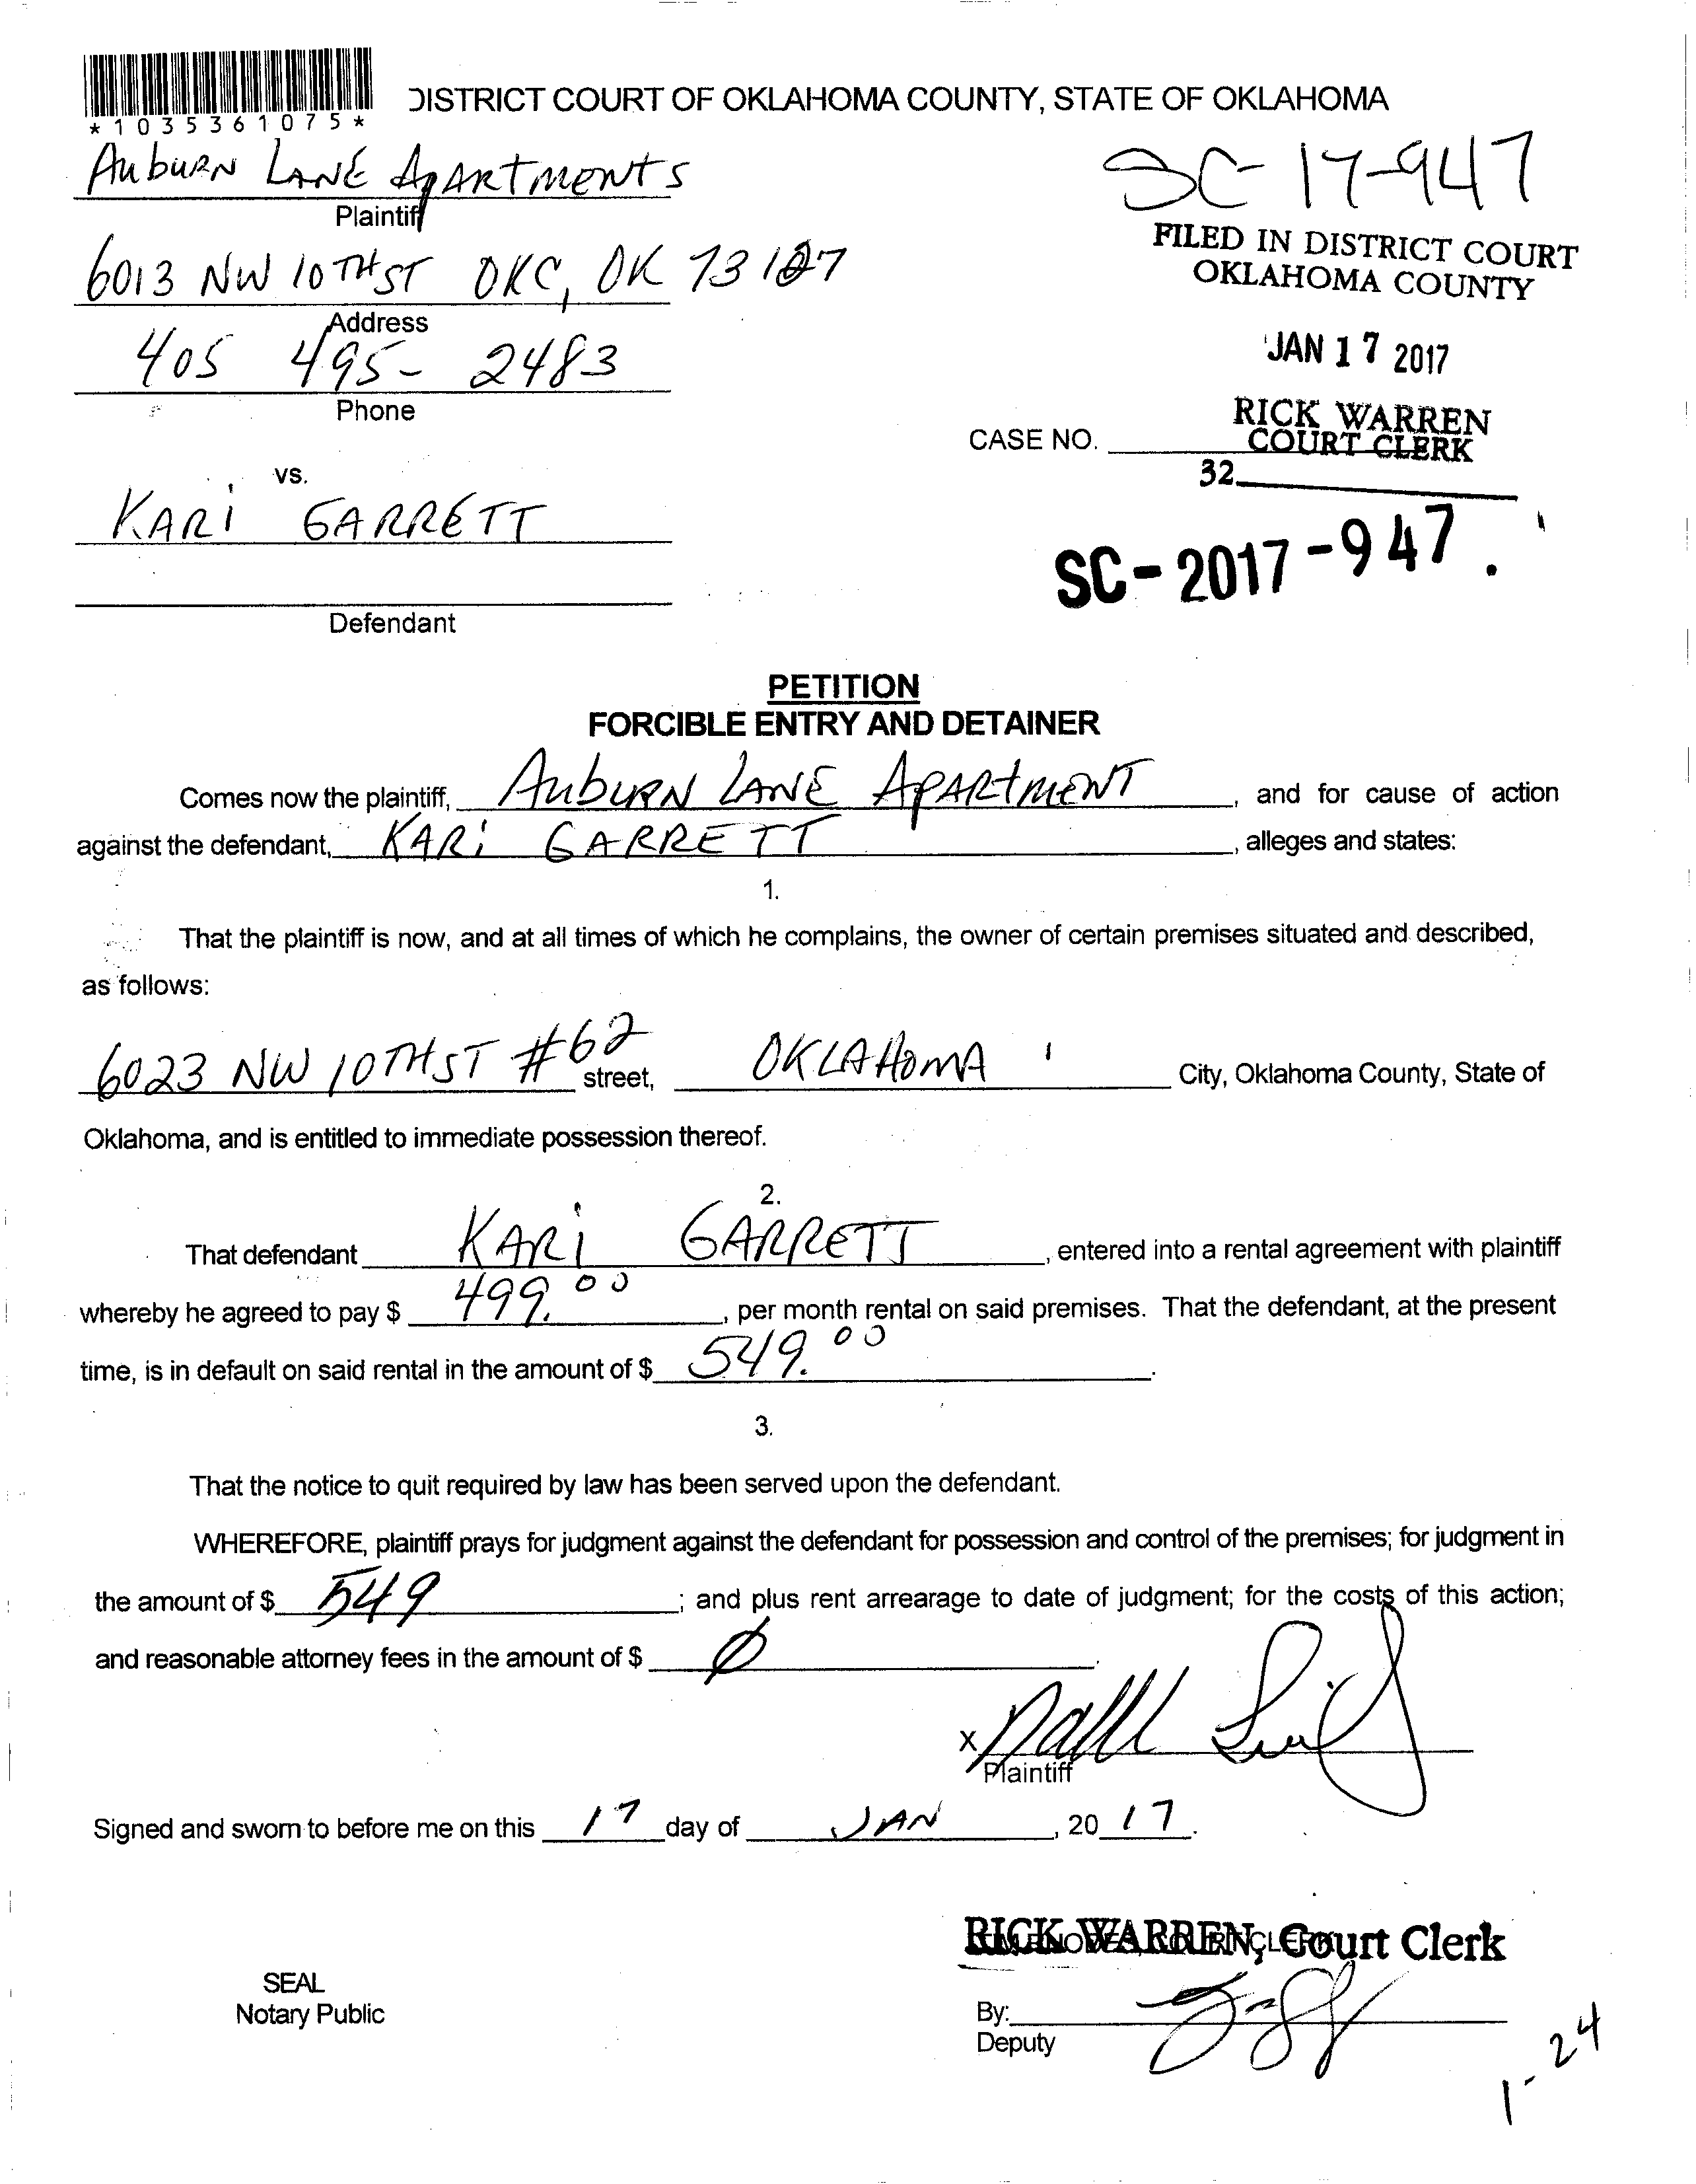 *1035361075*
DISTRICT COURT OF OKLAHOMA COUNTY, STATE OF OKLAHOMA
AuburN LANE ApARTMENTS
SC-17-947
Plaintiff
FILED IN DISTRICT COURT
OKLAHOMA COUNTY
6013 NW 10TH ST OKC, OK 73127
Address
JAN 17 2017
405 495-2483
Phone
RICK WARREN
COURT CLERK
CASE NO.
32
vs.
KARi GARRETT
SC-2017-947.
Defendant
PETITION
FORCIBLE ENTRY AND DETAINER
Comes now the plaintiff, AubURN LANE APARtMENT, and for cause of action
against the defendant, KARi GARRETT, alleges and states:
1.
That the plaintiff is now, and at all times of which he complains, the owner of certain premises situated and described,
as follows:
6023 NW 10TH ST #62 street, OKLAHOMA City, Oklahoma County, State of
Oklahoma, and is entitled to immediate possession thereof.
2.
That defendant KARi GARRETT, entered into a rental agreement with plaintiff
whereby he agreed to pay $ 499.00, per month rental on said premises. That the defendant, at the present
time, is in default on said rental in the amount of $ 549.00.
3.
That the notice to quit required by law has been served upon the defendant.
WHEREFORE, plaintiff prays for judgment against the defendant for possession and control of the premises; for judgment in
the amount of $ 549; and plus rent arrearage to date of judgment; for the costs of this action;
and reasonable attorney fees in the amount of $ Ø.
x
Plaintiff
Signed and sworn to before me on this 17 day of JAN, 2017.
RICK WARREN, Court Clerk
SEAL
Notary Public
By:
Deputy
1-24